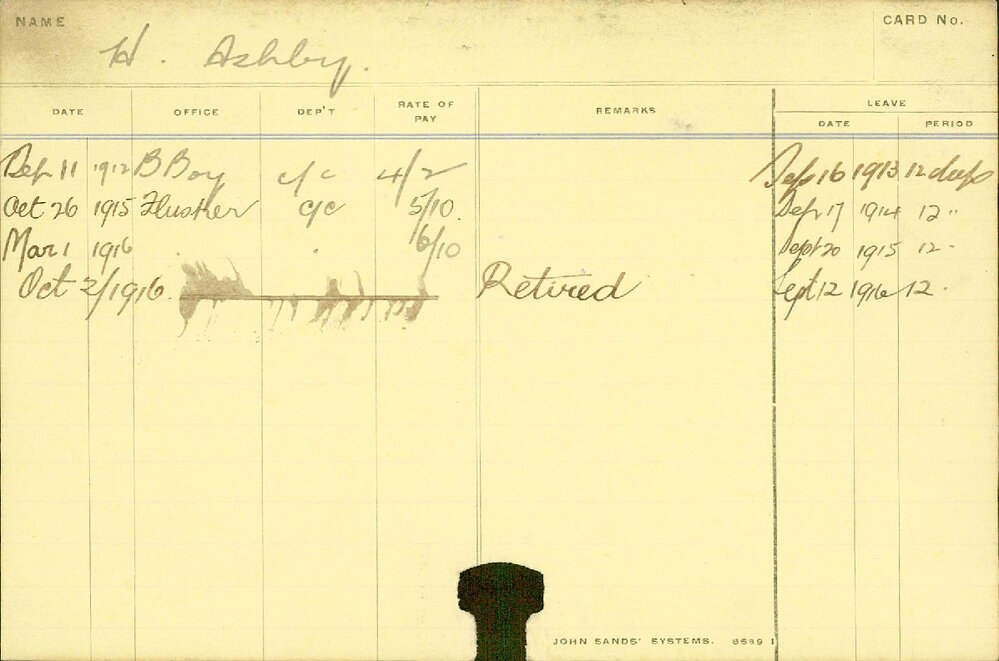 NAME
CARD No.
H. Ashby.
DATE OFFICE DEP'T RATE OF PAY REMARKS LEAVE
DATE PERIOD
Sep 11 1912 B Boy c/c 4/2 Sep 16 1913 12 days
Oct 26 1915 Flusher c/c 5/10. Sep 17 1914 12 "
Mar 1 1916 6/10 Sept 20 1915 12 "
Oct 2/1916. Retired Sept 12 1916 12 "
JOHN SANDS' SYSTEMS. 8689 1